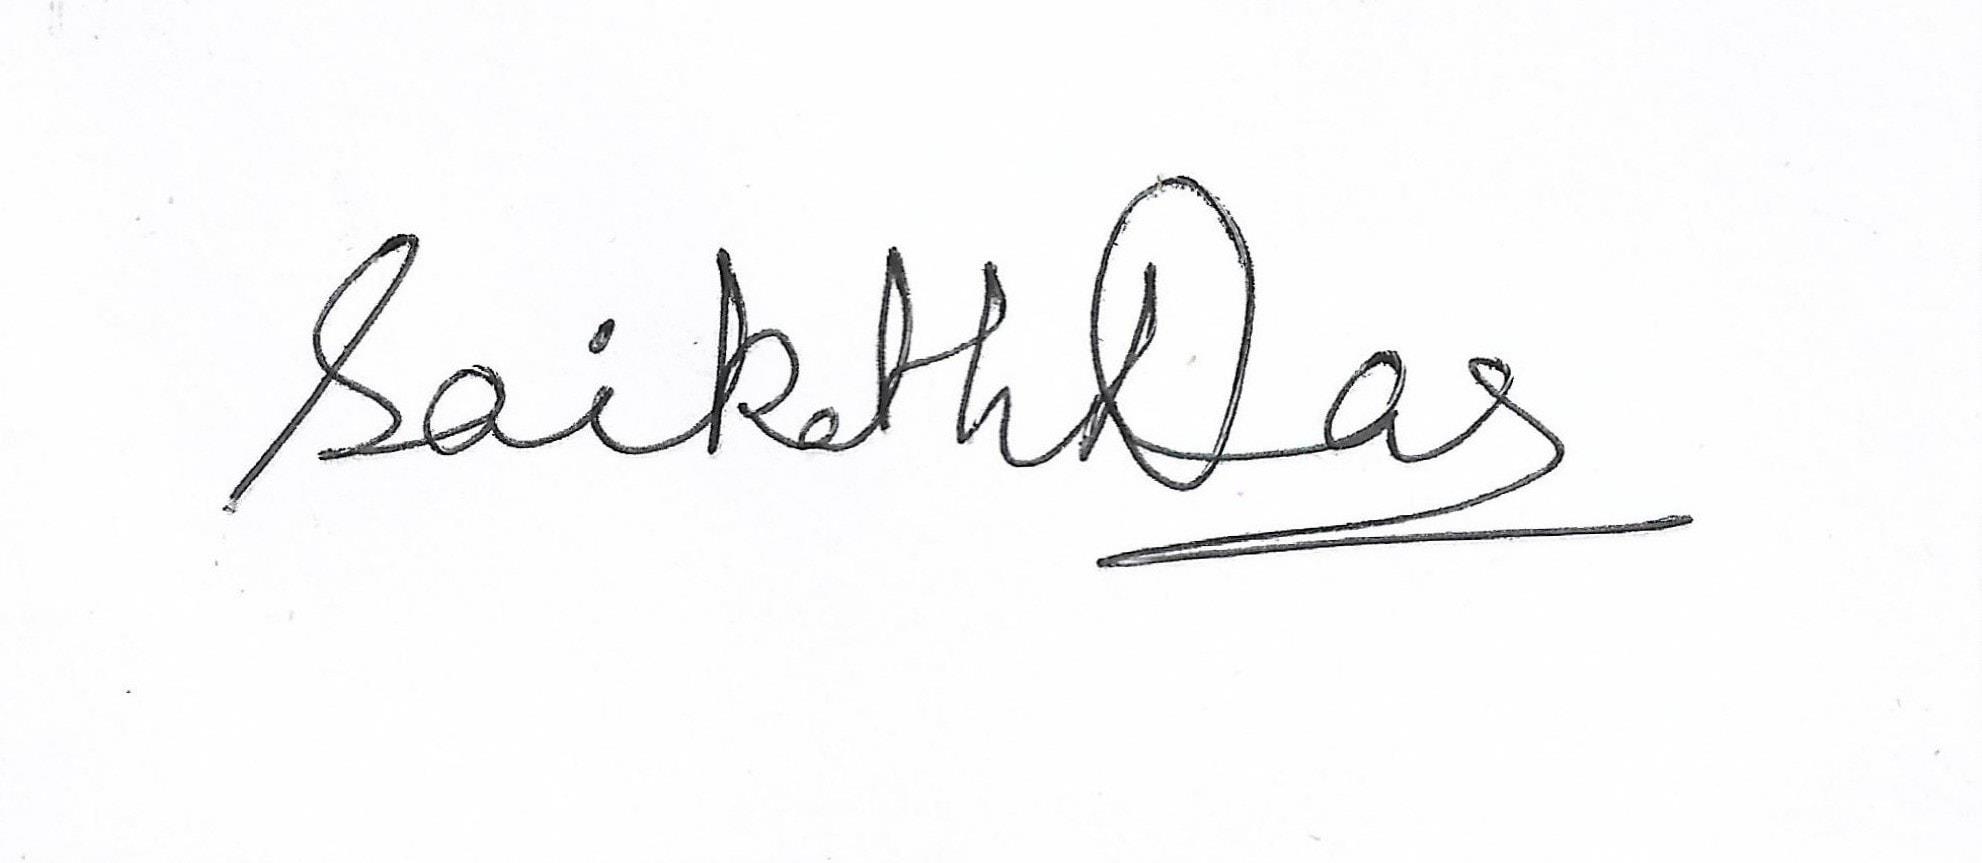 Saikath Das